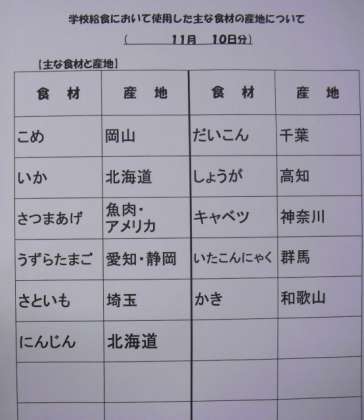 学校給食において使用した主な食材の産地について
（　　　11月　10日分）
【主な食材と産地】
食　材　産　地　食　材　産　地
こめ　岡山　だいこん　千葉
いか　北海道　しょうが　高知
さつまあげ　魚肉・アメリカ　キャベツ　神奈川
うずらたまご　愛知・静岡　いたこんにゃく　群馬
さといも　埼玉　かき　和歌山
にんじん　北海道